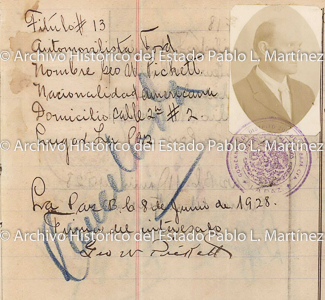 Título # 13
Automovilista Ford
Nombre Geo W. Pickett
Nacionalidad americana
Domicilio Calle 2ª # 2
Lugar La Paz
Cancelado
La Paz B. C. 8 de Junio de 1928.
Firma del interesado
Geo W Pickett
Archivo Histórico del Estado Pablo L. Martínez
Archivo Histórico del Estado Pablo L. Martínez
Archivo Histórico del Estado Pablo L. Martínez
Archivo Histórico del Estado Pablo L. Martínez
Archivo Histórico del Estado Pablo L. Martínez